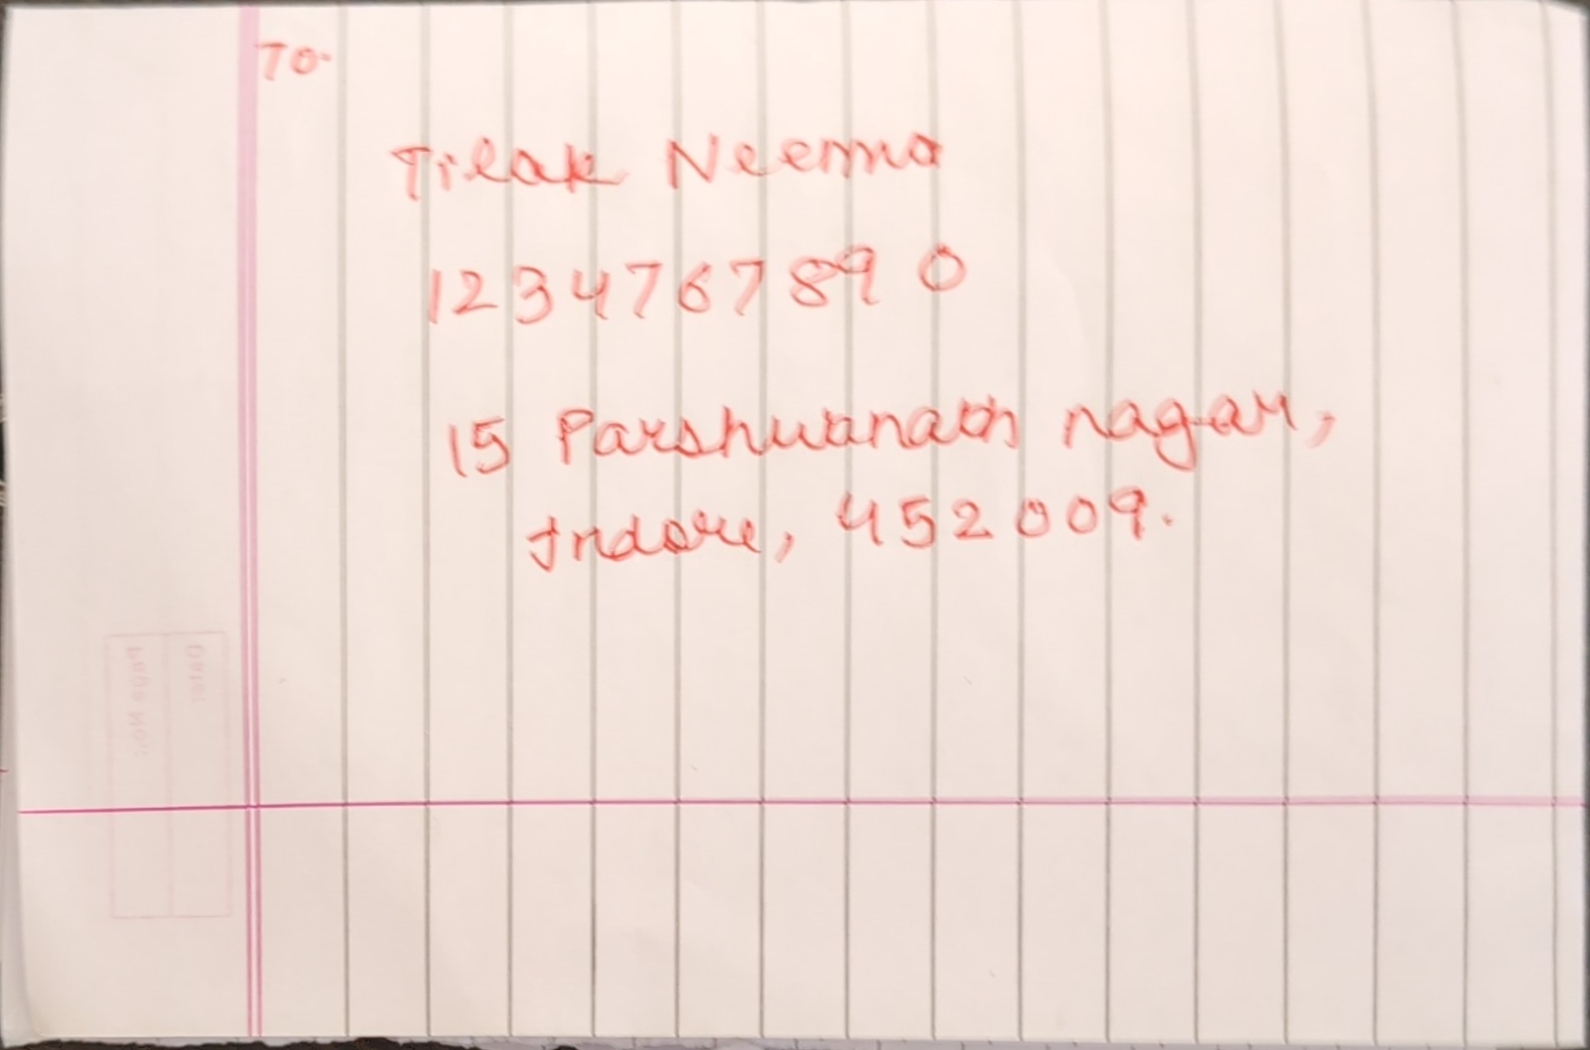 To.
Tilak Neema
1234767890
15 Parshwanath nagar,
Indore, 452009.